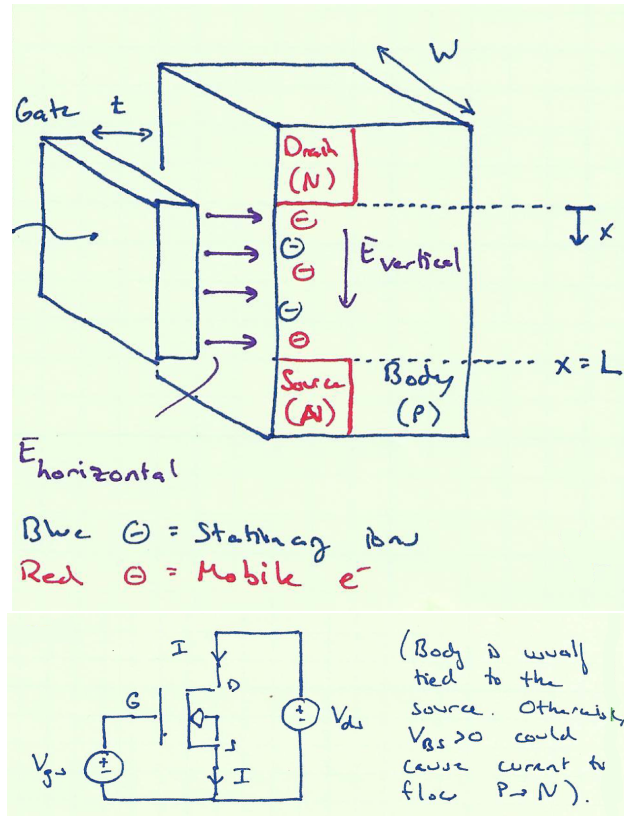 W
Gate t
Drain
(N)
x
E vertical
x = L
Source
(N)
Body
(P)
E horizontal
Blue ⊖ = Stationary ions
Red ⊖ = Mobile e⁻
I
G
D
S
I
Vgs
Vds
(Body is usually
tied to the
source. Otherwise,
VBS >0 could
cause current to
flow P→N).